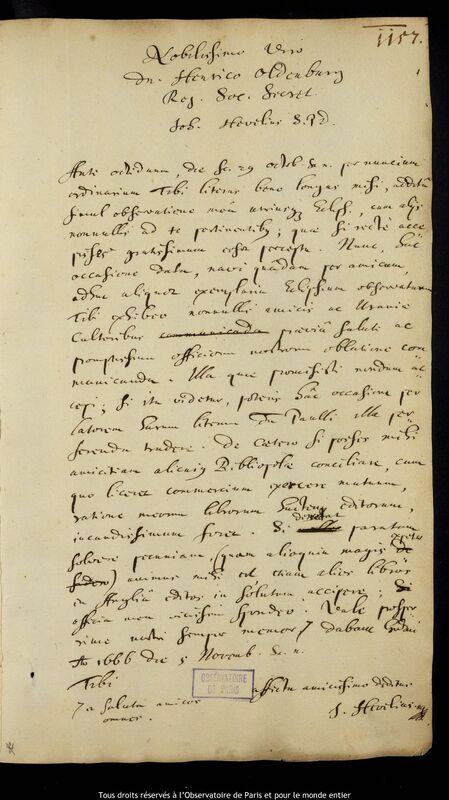 1157.
Nobilissimo Viro
Dn. Henrico Oldenburg
Reg. Soc. Secret.
Joh. Hevelius S. P. d.
Ante octiduum, die sc. 29 octob. s.n. per nuncium
ordinarium Tibi literas bene longas misi, addita
simul observatione mea utriusq; Eclips. cum aliis
nonnullis ad te pertinentib9; quae si recte acce
pisses gratissimum esset percepta. Nunc, hac
occasione data, navi quadam per amicum,
adhuc aliquot exemplaria Eclipsium observatarum
Tibi exhibeo nonnullis amicis ac Uraniae
Cultoribus communicanda praevia salute ac
promptissima officiorum nostrorum oblatione com
municanda. Illa quae promisisti nondum ac
cepi; si ita videtur, poteris hac occasione per
latorem harum literarum Dn. Paulli illa per
ferenda tradere. De caetero si posses mihi
amicitiam alicuius Bibliopolae conciliare, cum
quo liceret commercium exercere mutuum,
ratione meorum librorum hactenus editorum,
jucundissimum foret. Si paratam
solvere pecuniam (quam alioquin magis
) animus mihi est etiam alios libros
in Anglia editos in solutum accipere;
officia mea vicissim spondeo. Vale prosper
rime nostri semper memor, dabam Gedani
Ao 1666 die 5 Novemb. s. n.
Tibi
affectu amicissimo deditus
J. Hevelius
a saluta amicos
omnes.
OBSERVATOIRE
DE PARIS
Tous droits réservés à l'Observatoire de Paris et pour le monde entier